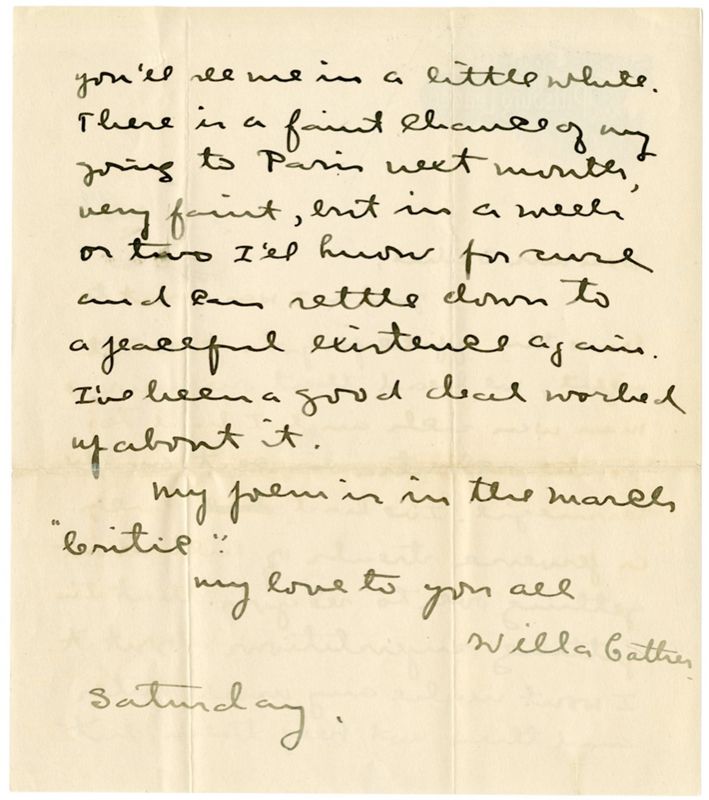 you'll see me in a little while.
There is a faint chance of my
going to Paris next month,
very faint, but in a week
or two I'll know for sure
and can settle down to
a peaceful existence again.
I've been a good deal worked
up about it.
My poem is in the March
"Critic".
My love to you all
Willa Cather.
Saturday.